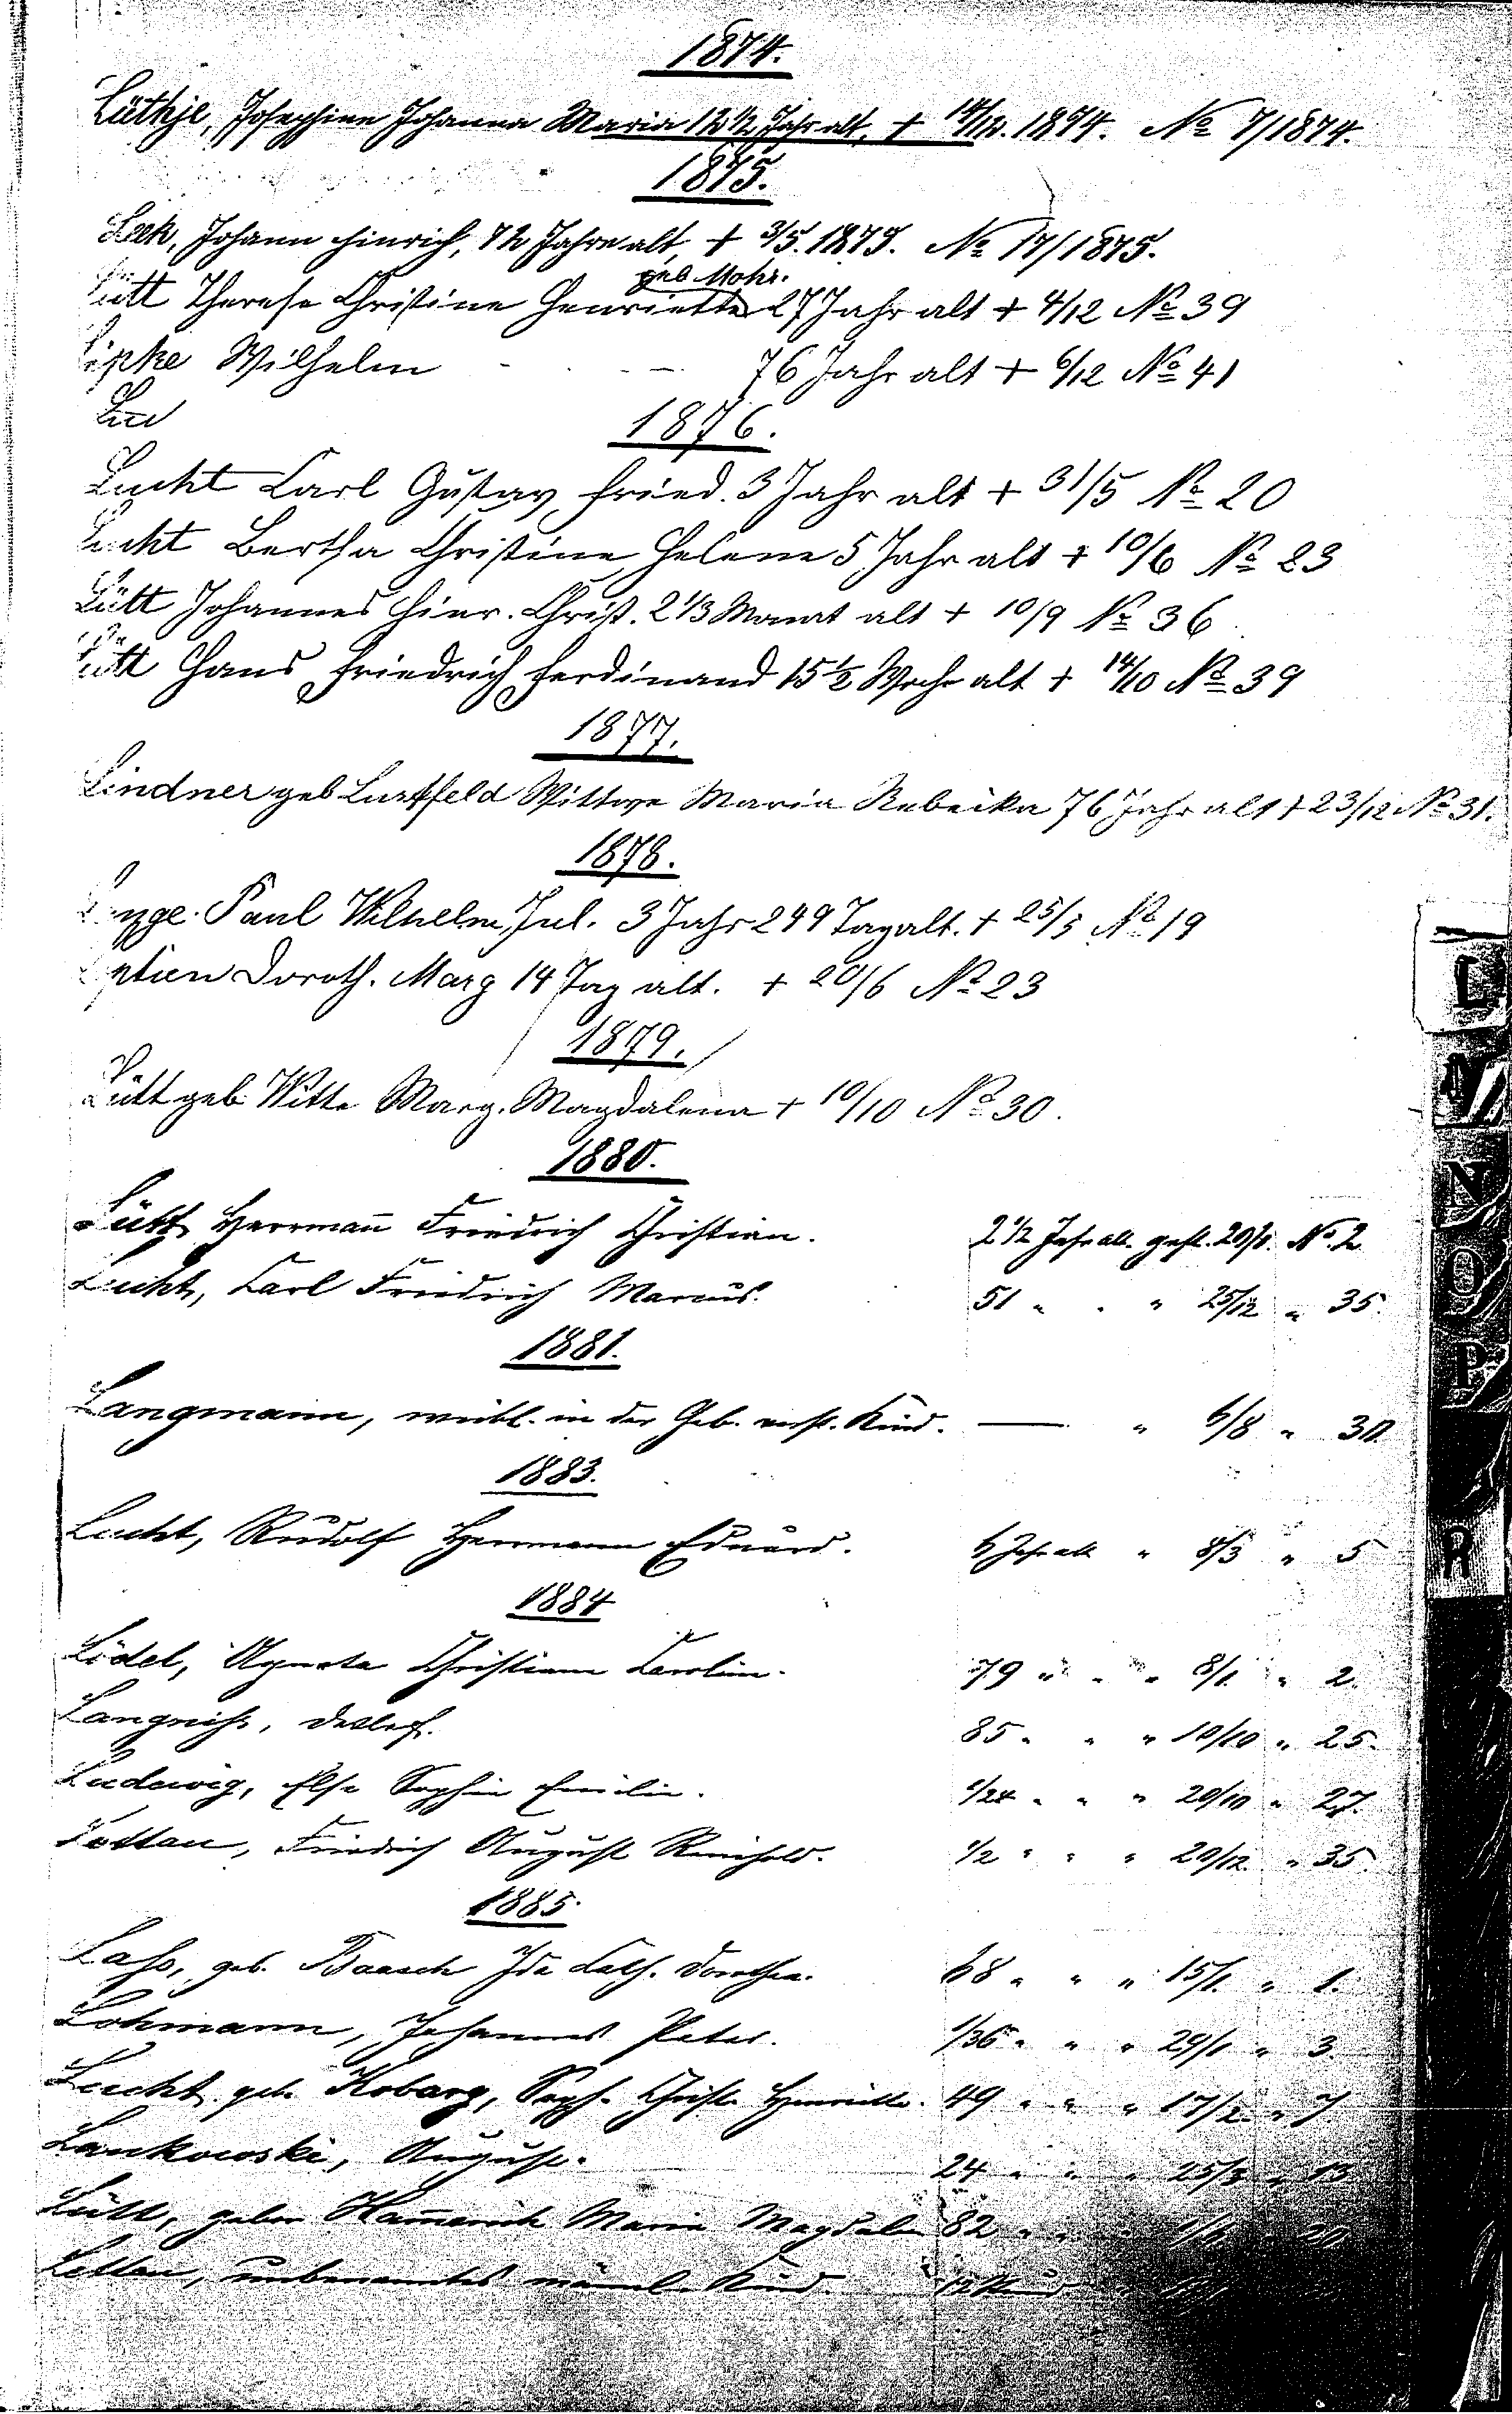 1874.
Lüthje, Josephine Johanna Maria 12 1/2 Jahr alt, + 14/12. 1874. No 7/1874.
1875.
Leek, Johann Hinrich, 72 Jahre alt, + 3/5. 1875. No 17/1875.
geb Mohr.
Lütt Therese Christine Henriette 27 Jahr alt + 4/12 No 39
Lipke Wilhelm - - - 76 Jahr alt + 6/12 No 41
1876.
Lucht Carl Gustav Fried. 3 Jahr alt + 31/5 No 20
Lucht Bertha Christine Helene 5 Jahr alt + 10/6 No 23
Lütt Johannes Hinr. Christ. 2 1/3 Monat alt + 10/9 No 36
Lütt Hans Friedrich Ferdinand 15 1/2 Woche alt + 14/10 No 39
1877.
Lindner geb Wittwe Maria Rebeika 76 Jahr alt + 23/12 No 31.
1878.
Paul Wilhelm Jul. 3 Jahr 249 Tag alt. + 25/5 No 19
Doroth. Marg 14 Tag alt. + 20/6 No 23
1879.
Lütt geb Witte Marg. Magdalena + 10/10 No 30.
1880.
Lütt, Herrmann Friedrich Christian. 2 1/2 Jahr alt. gest. 20/1. No. 2
Lucht, Carl Friedrich Marcus. 51 " " " 25/12 " 35.
1881.
Langmann, weibl. in der Geb. verst. Kind. — " 6/8 " 30.
1883.
Lucht, Rudolf Herrmann Eduard. 6 Jahr alt " 8/3 " 5
1884
Lödel, Agneta Christiane Carolin. 79 " " " 8/1. " 2.
Langniß, Detlef. 85 " " " 10/10 " 25.
Ludewig, Else Sophie Emilie. 1/24 " " " 20/10 " 27.
Lottau, Friedrich August Reinhold. 1/2 " " " 20/12. " 35.
1885.
Lass, geb. Baasch Ida Cath. Dorothea. 68 " " " 15/1. " 1.
Lohmann, Johannes Peter. 1/36 " " " 29/1 " 3.
Lucht geb. Kobarg, Soph. Christ. Henriette. 49 " " " 17/2. " 7
Lankowski, August. 24 " " " 25/3 " 13
Lütt, Maria Magdalen 82 " "
unbenanntes männl. Kind.
L
M
N
O
P
R